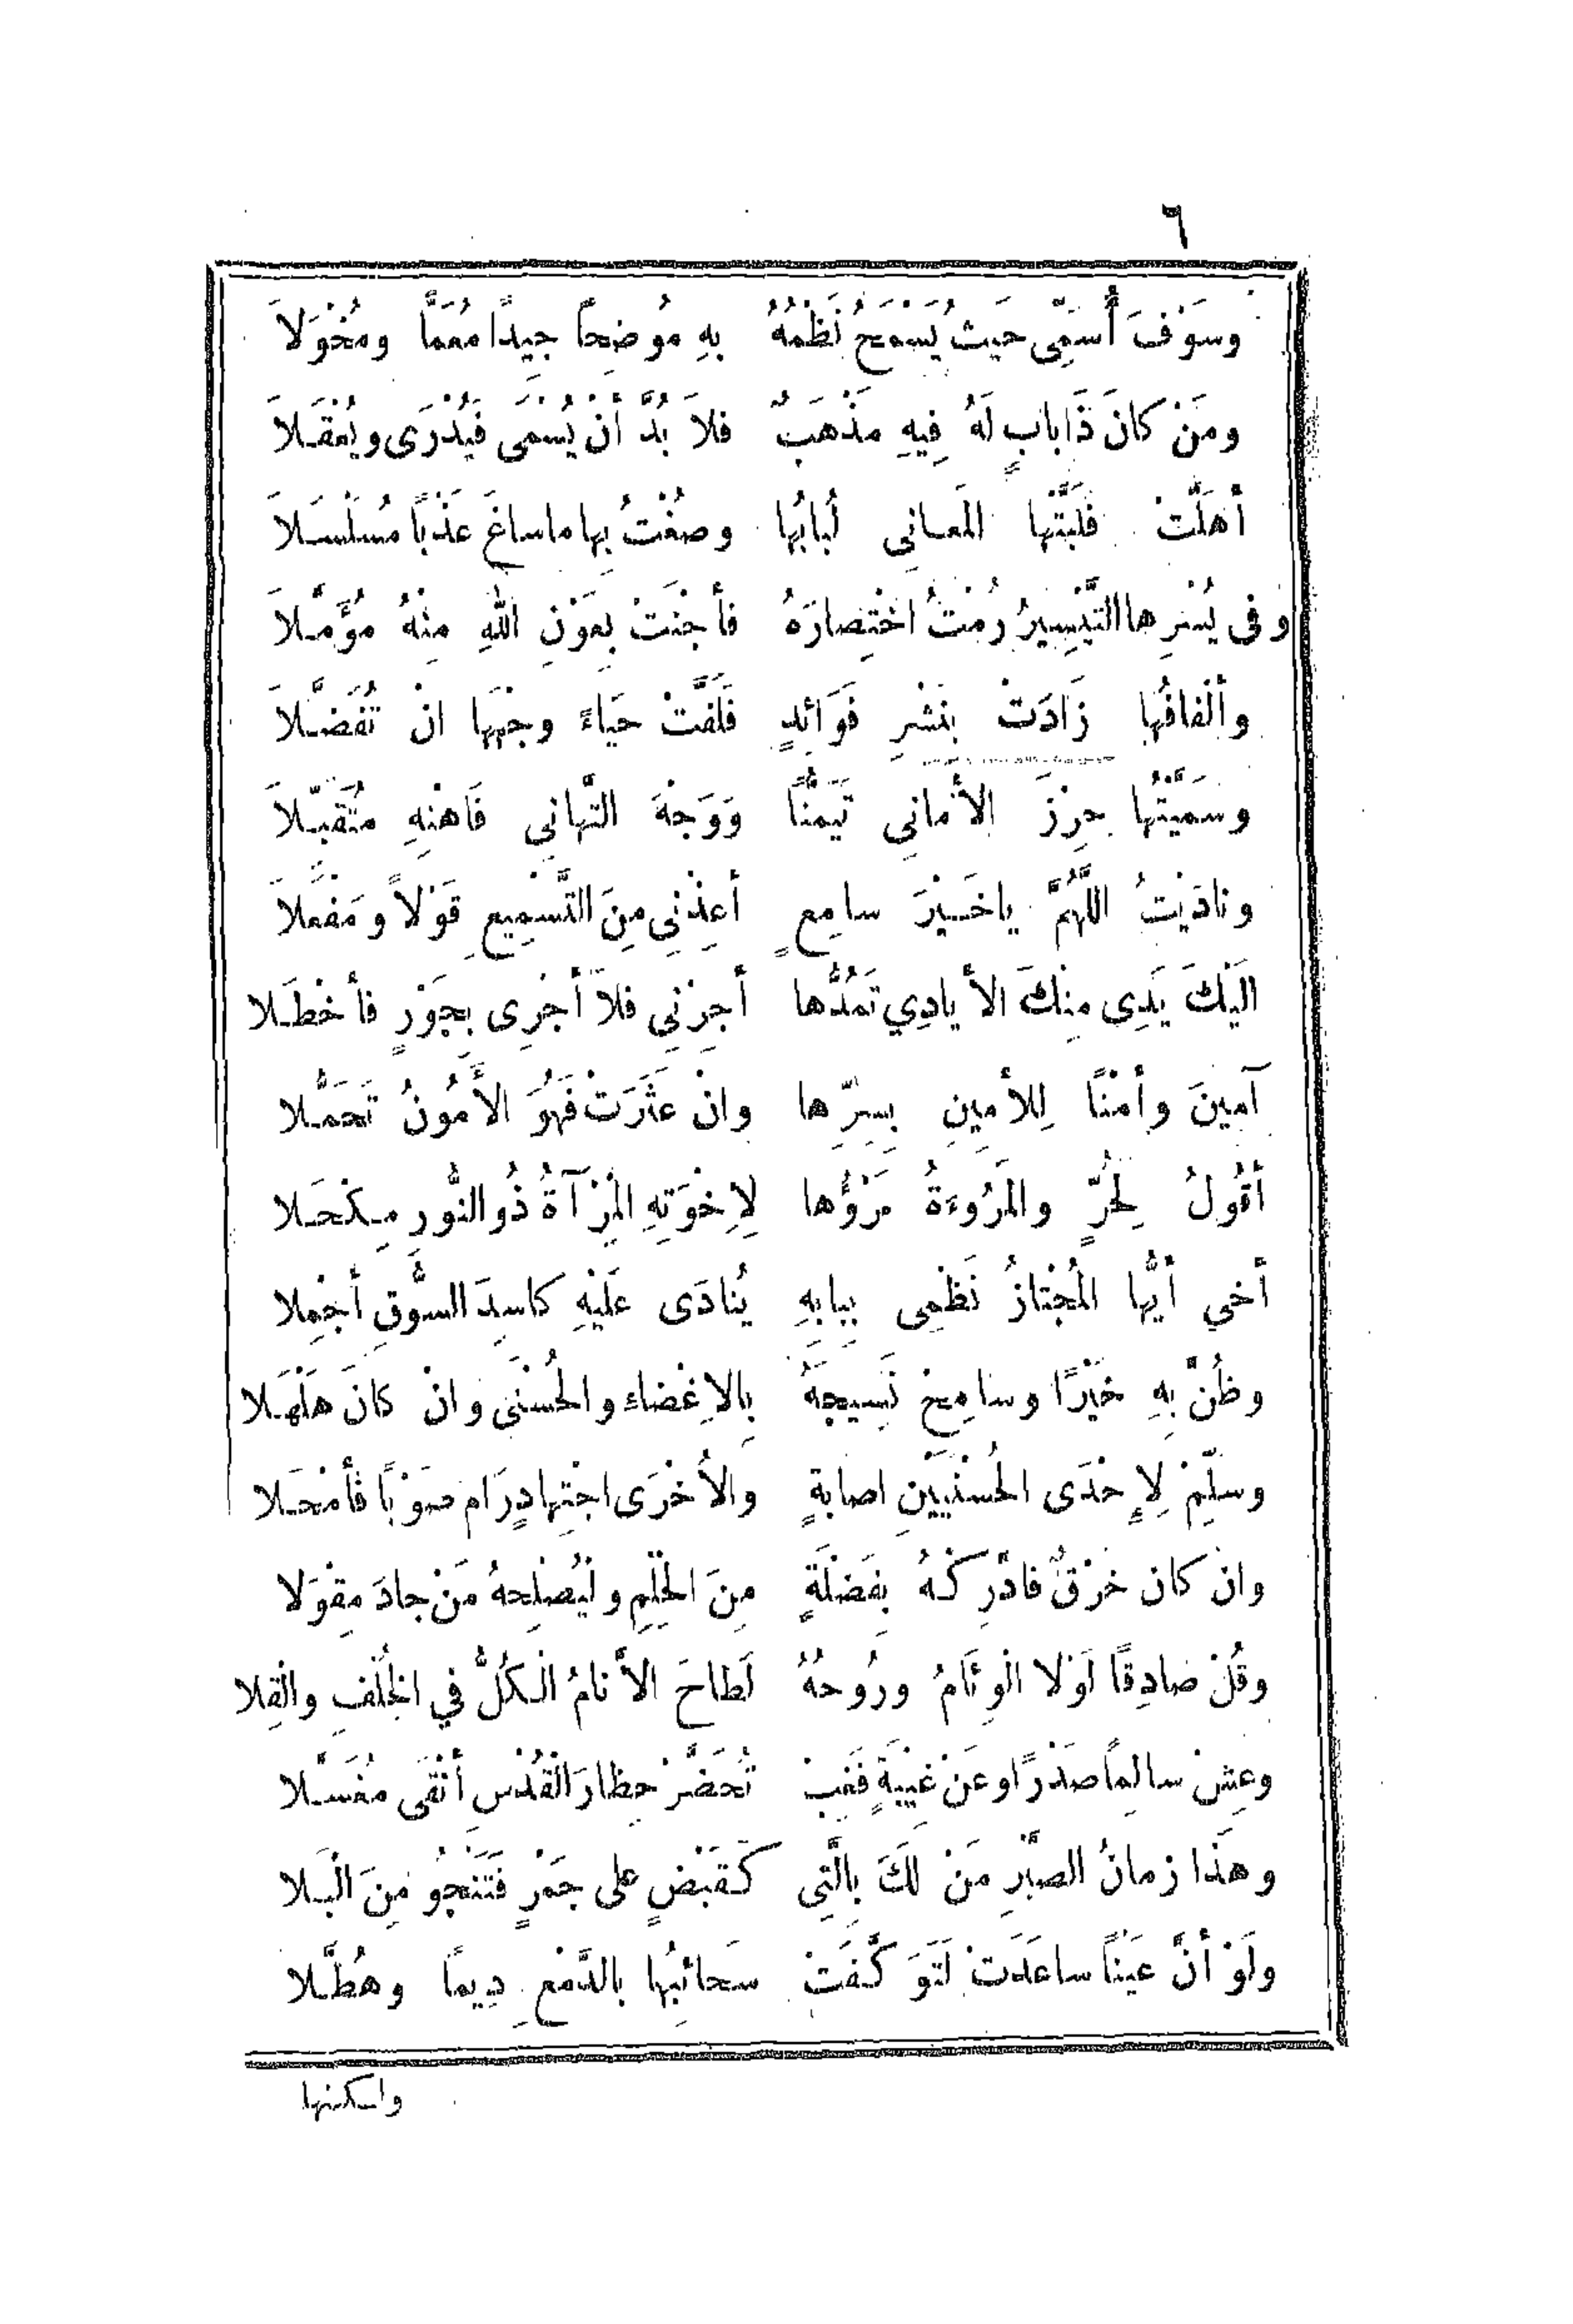 ٦
وسَوْفَ أُسَمِّى حَيثُ يَسْمَحُ نَظْمُهُ بِهِ مُوضِحاً جِيدًا مُعَمًّا ومُخْوَلاَ
ومَنْ كانَ ذَا بابٍ لَهُ فِيهِ مَذْهَبٌ فلاَ بُدَّ أنْ يُسْمَى فَيُدْرَى ويُعْقَلاَ
أهَلَّتْ فَلَبَّتْها المَعانِى لُبابُها وصُغْتُ بِها ماساغَ عَذْباً مُسَلْسَلاَ
وفى يُسْرِها التَّيْسِيرُ رُمْتُ اخْتِصارَهُ فأجْنَتْ بِعَوْنِ اللهِ مِنْهُ مُؤَمَّلاَ
وألْفافُها زَادَتْ بِنَشْرِ فَوَائِدٍ فَلَفَّتْ حَيَاءً وجْهَهَا انْ تُفَضَّلاَ
وسَمَّيْتُها حِرْزَ الأمانِى تَيَمُّنًا وَوَجْهَ التَّهانِى فَاهْنِهِ مُتَقَبِّلاَ
ونادَيْتُ اللَّهُمَّ ياخَيْرَ سامِعٍ أعِذْنِى مِنَ التَّسْمِيعِ قَوْلاً ومَفْعَلاَ
الَيْكَ يَدِى مِنْكَ الأيادِي تَمُدُّها أجِرْنِي فلاَ أجْرِى بِجَوْرٍ فأخْطَلا
آمينَ وأمْنًا لِلأمِينِ بِسِرِّها وانْ عَثَرَتْ فَهُوَ الأمُونُ تَحَمُّلا
أقُولُ لِحُرٍّ والمَرُوءَةُ مَرْؤُها لِإِخْوَتِهِ المِرْآةُ ذُو النُّورِ مِكْحَلا
أخي أيُّها المُجْتازُ نَظْمِى بِبابِهِ يُنادَى عَلَيْهِ كاسِدَ السُّوقِ أجْمِلا
وظُنَّ بِهِ خَيْرًا وسامِحْ نَسِيجَهُ بِالاِغْضاءِ والحُسْنَى وانْ كانَ هَلْهَلا
وسَلِّمْ لِإِحْدَى الحُسْنَيَيْنِ اصابةٍ والأُخْرَى اجْتِهادٍ رَام صَوْبًا فأمْحَلا
وانْ كان خَرْقٌ فادَّرِكْهُ بِفَضْلَةٍ مِنَ الحِلْمِ ولْيُصْلِحهُ مَنْ جادَ مِقْوَلا
وقُلْ صَادِقًا لَوْلا الْوِئَامُ ورُوحُهُ لَطاحَ الأَنامُ الْكُلُّ في الخُلْفِ والْقِلا
وعِشْ سالِماً صَدْرًا وعَنْ غِيْبَةٍ فَغِبْ تُحَضَّرْ حِظارَ الْقُدْسِ أنْقَى مُغَسَّلا
وهَذَا زمانُ الصَّبْرِ مَنْ لَكَ بِالَّتِى كَقَبْضٍ على جَمْرٍ فَتَنْجُو مِنَ الْبَلا
ولَوْ أنَّ عَيْناً ساعَدَتْ لَتَوَكَّفَتْ سَحائِبُها بالدَّمْعِ دِيماً وهُطَّلا
واسكنها